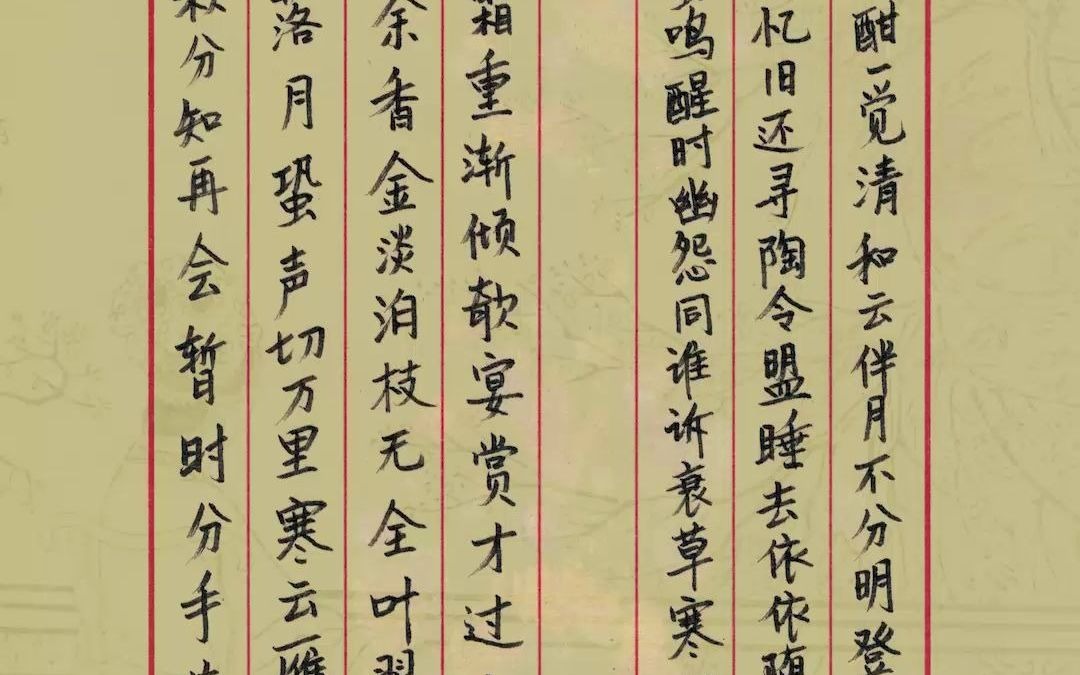 酣一觉清和云伴月不分明登
忆旧还寻陶令盟睡去依依随
鸣醒时幽怨同谁诉衰草寒
霜重渐倾欹宴赏才过
余香金淡泊枝无全叶翠
落月蛩声切万里寒云雁
秋分知再会暂时分手